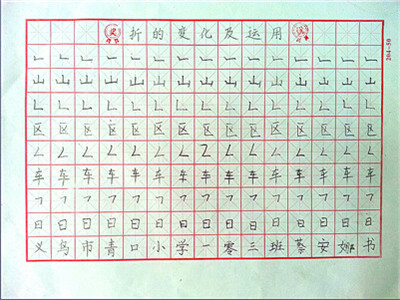 折的变化及运用
㇗㇗㇗㇗㇗㇗㇗㇗㇗㇗㇗㇗㇗㇗㇗
山山山山山山山山山山山山山山山
㇗㇗㇗㇗㇗㇗㇗㇗㇗㇗㇗㇗㇗㇗㇗
区区区区区区区区区区区区区区区
㇜㇜㇜㇜㇜㇜㇜㇜㇜㇜㇜㇜㇜㇜㇜
车车车车车车车车车车车车车车车
㇕㇕㇕㇕㇕㇕㇕㇕㇕㇕㇕㇕㇕㇕㇕
日日日日日日日日日日日日日日日
义乌市青口小学一零三班蔡安娜书